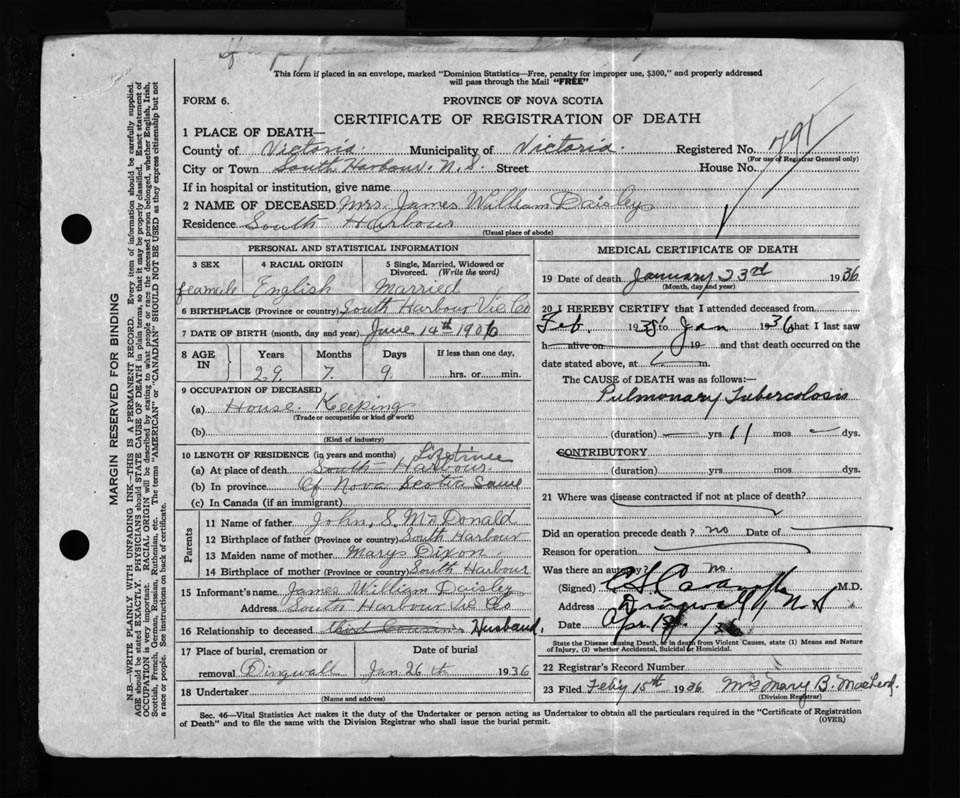 This form if placed in an envelope, marked "Dominion Statistics—Free, penalty for improper use, $300," and properly addressed
will pass through the Mail "FREE"
FORM 6.
PROVINCE OF NOVA SCOTIA
CERTIFICATE OF REGISTRATION OF DEATH
1 PLACE OF DEATH—
County of Victoria. Municipality of Victoria. Registered No. 791
(For use of Registrar General only)
City or Town South Harbour. N.S. Street House No.
If in hospital or institution, give name
2 NAME OF DECEASED Mrs. James William Daisley
Residence South Harbour
(Usual place of abode)
PERSONAL AND STATISTICAL INFORMATION
3 SEX 4 RACIAL ORIGIN 5 Single, Married, Widowed or
Divorced. (Write the word)
feamale English Married
6 BIRTHPLACE (Province or country) South Harbour Vic. Co
7 DATE OF BIRTH (month, day and year) June 14th 1906
8 AGE IN Years Months Days If less than one day,
29. 7. 9. hrs. or min.
9 OCCUPATION OF DECEASED
(a) House Keeping
(Trade or occupation or kind of work)
(b)
(Kind of industry)
10 LENGTH OF RESIDENCE (in years and months) Lifetime
(a) At place of death South Harbour.
(b) In province Of Nova Scotia Same
(c) In Canada (if an immigrant)
Parents
11 Name of father John. S. McDonald
12 Birthplace of father (Province or country) South Harbour
13 Maiden name of mother Marys Dixon.
14 Birthplace of mother (Province or country) South Harbour
15 Informant's name James William Daisley
Address South Harbour Vic Co
16 Relationship to deceased third Cousins Husband.
17 Place of burial, cremation or Date of burial
removal Dingwall Jan 26th 1936
18 Undertaker
(Name and address)
MEDICAL CERTIFICATE OF DEATH
19 Date of death January 23rd 1936
(Month, day and year)
20 I HEREBY CERTIFY that I attended deceased from
Feb. 1935 to Jan 1936 that I last saw
h alive on 19 and that death occurred on the
date stated above, at m.
The CAUSE OF DEATH was as follows:—
Pulmonary Tubercolosis
(duration) — yrs 11 mos — dys.
CONTRIBUTORY
(duration) yrs. mos. dys.
21 Where was disease contracted if not at place of death?
Did an operation precede death? no Date of
Reason for operation
Was there an autopsy? No.
(Signed) M.D.
Address Dingwall N.S
Date Apr. 18
State the Disease causing Death, or in death from Violent Causes, state (1) Means and Nature
of Injury, (2) whether Accidental, Suicidal or Homicidal.
22 Registrar's Record Number
23 Filed Feby 15th 1936 Mrs Mary B. MacLeod.
(Division Registrar)
Sec. 46—Vital Statistics Act makes it the duty of the Undertaker or person acting as Undertaker to obtain all the particulars required in the "Certificate of Registration
of Death" and to file the same with the Division Registrar who shall issue the burial permit. (OVER)
MARGIN RESERVED FOR BINDING
N.B.—WRITE PLAINLY WITH UNFADING INK—THIS IS A PERMANENT RECORD. Every item of information should be carefully supplied.
AGE should be stated EXACTLY. PHYSICIANS should STATE CAUSE OF DEATH in plain terms, so that it may be properly classified. Exact statement of
OCCUPATION is very important. RACIAL ORIGIN will be described by stating to what people or race the deceased person belonged, whether English, Irish,
Scottish, French, German, Russian, Ruthenian, etc. The terms "AMERICAN" or "CANADIAN" SHOULD NOT BE USED as they express citizenship but not
a race or people. See instructions on back of certificate.